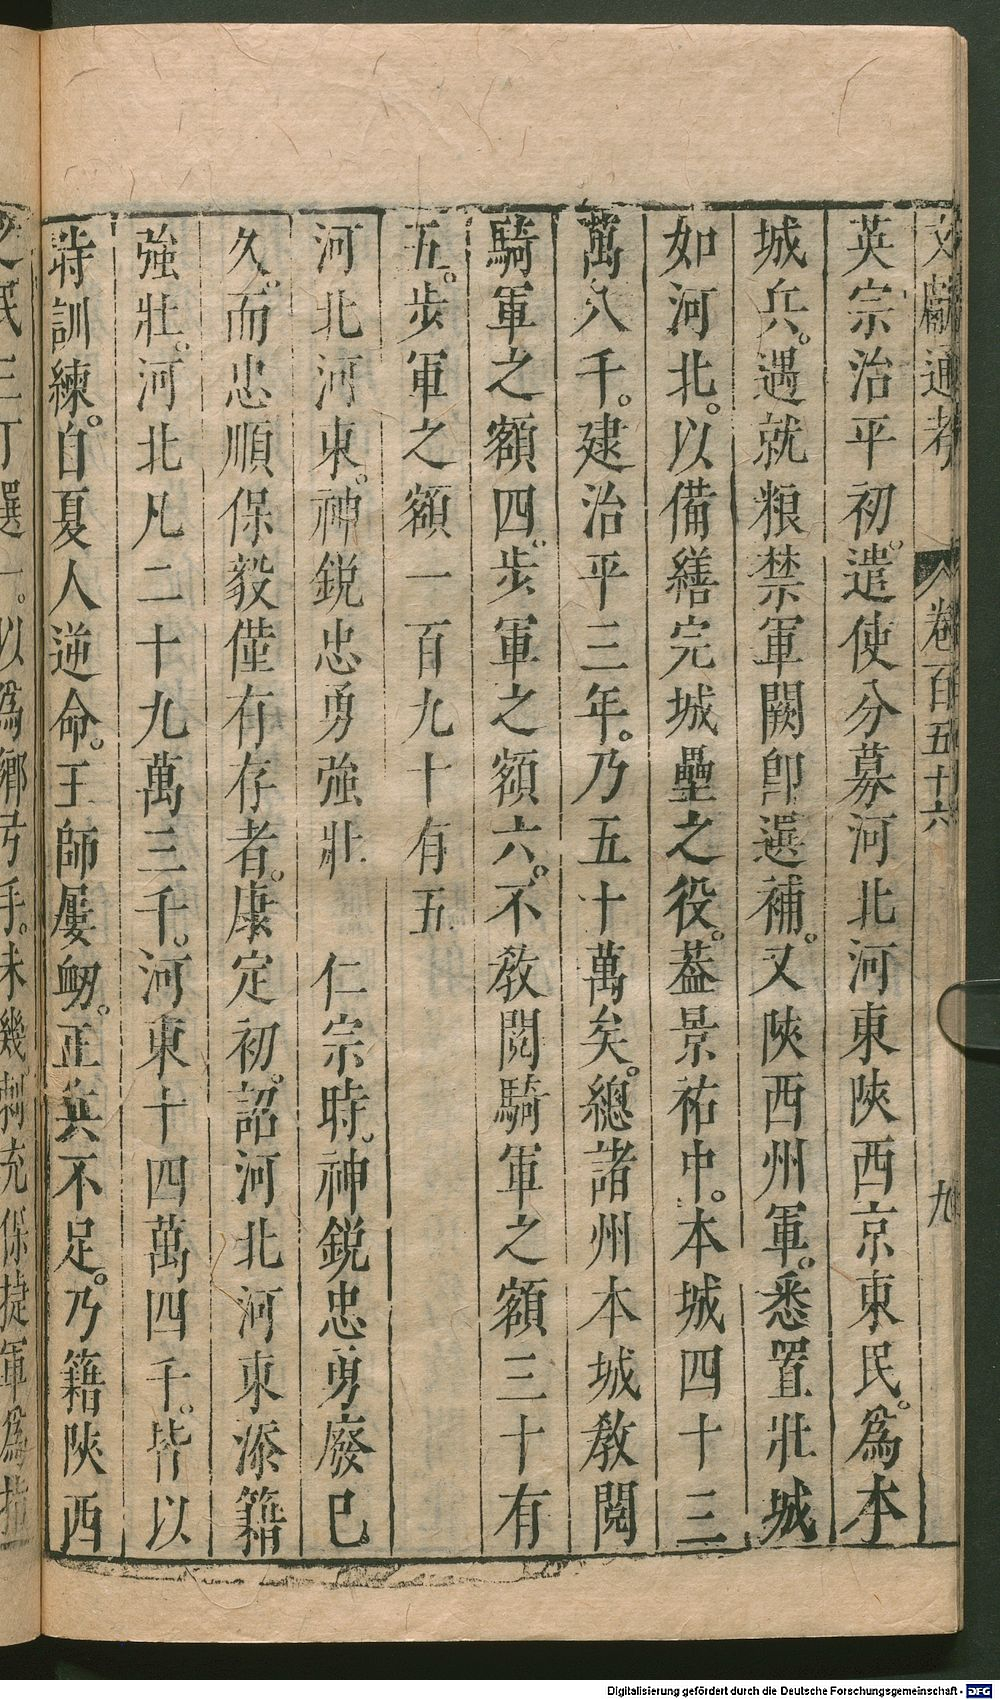 文獻通考 卷百五十六 九
英宗治平初。遣使分募河北河東陝西京東民。爲本
城兵。遇就粮禁軍闕卽選補。又陝西州軍。悉置壯城
如河北。以備繕完城壘之役。葢景祐中。本城四十三
萬八千。建治平三年。乃五十萬矣。總諸州本城教閱
騎軍之額四。步軍之額六。不教閱騎軍之額三十有
五。步軍之額一百九十有五
河北河東。神鋭忠勇強壯 仁宗時。神鋭忠勇廢已
久。而忠順保毅僅有存者。康定初。詔河北河東添籍
強壯。河北凡二十九萬三千。河東十四萬四千。皆以
時訓練。自夏人逆命。王師屢衂。正兵不足。乃籍陝西
之民三丁選一。以爲鄉弓手。未幾。刺充保捷軍爲指
Digitalisierung gefördert durch die Deutsche Forschungsgemeinschaft - DFG